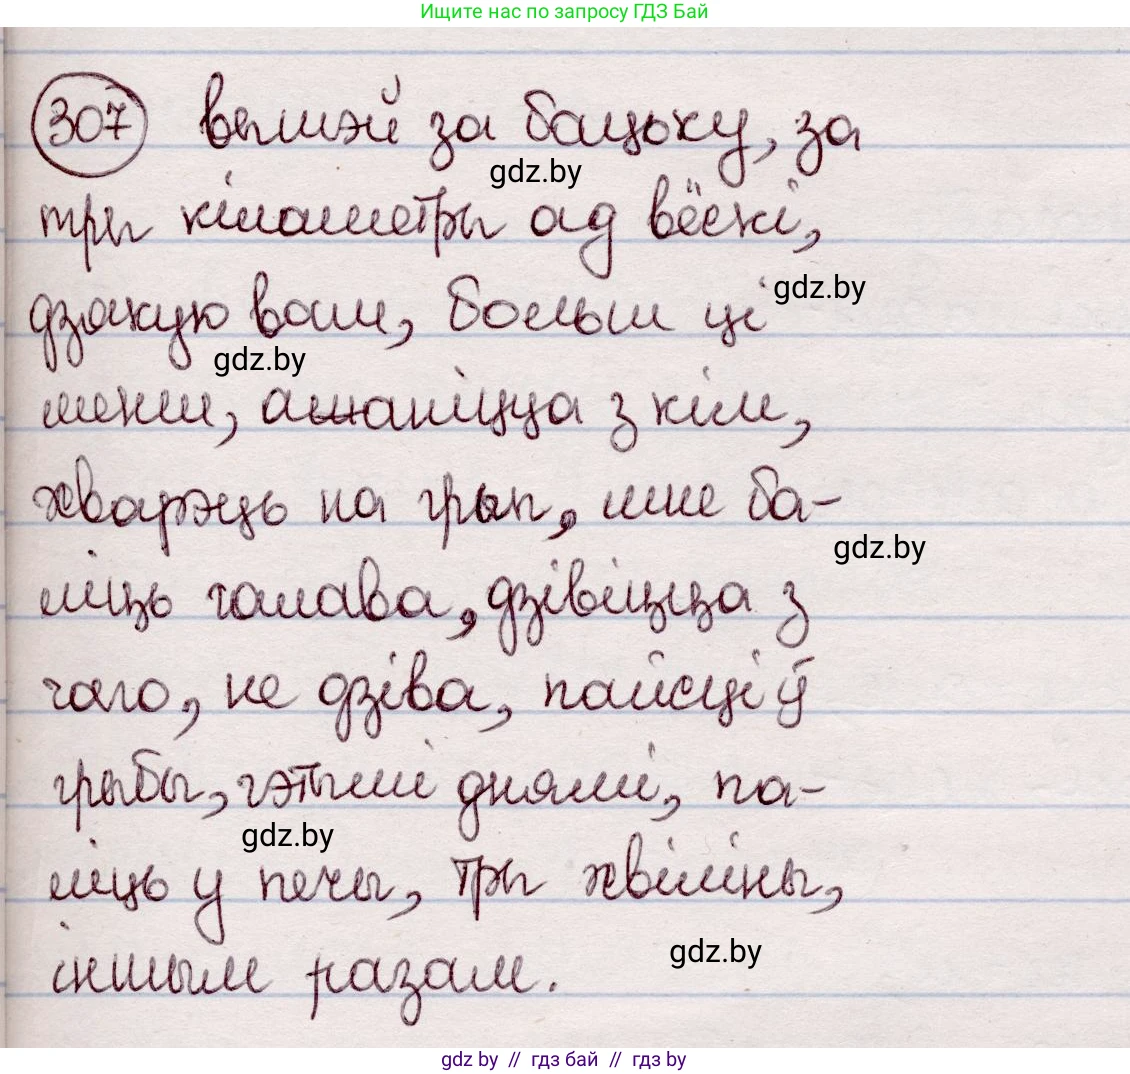 Ищите нас по запросу ГДЗ Бай
307 вышэй за бацьку, за
gdz.by
тры кіламетры ад вёскі,
gdz.by
дзякую вам, больш ці
gdz.by
менш, ажаніцца з кім,
хварэць на грып, мне ба-
gdz.by
ліць галава, дзівіцца з
чаго, не дзіва, пайсці ў
грыбы, гэтымі днямі, па-
gdz.by
ліць у печы, тры хвіліны,
gdz.by
іншым разам.
gdz by // гдз бай // гдз by